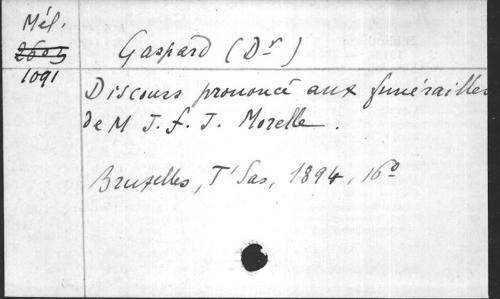 Mél.
2605
1091
Gaspard (Dr)
Discours prononcé aux funérailles
de M J. f. J. Morelle.
Bruxelles, T'Sas, 1894, 16o